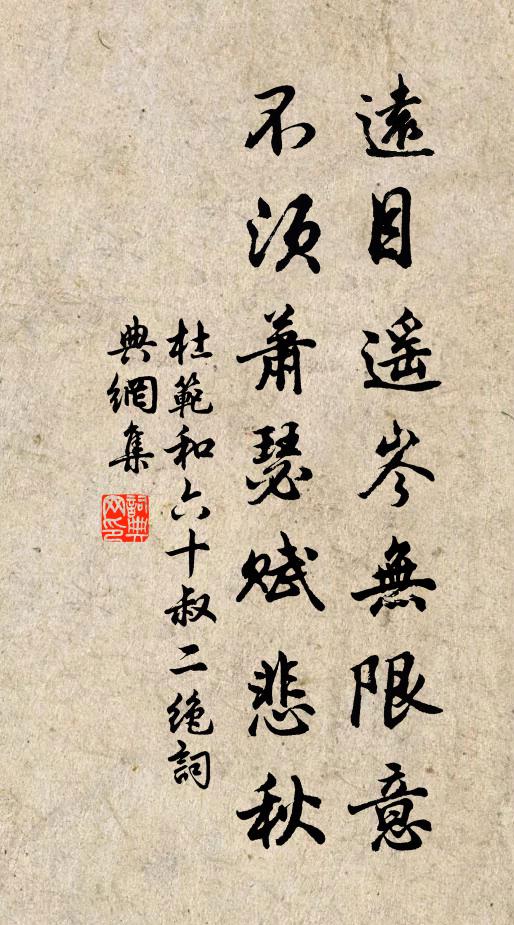 遠目遥岑無限意
不須蕭瑟賦悲秋
杜範和六十叔二絶詞
典網集
詞典网印